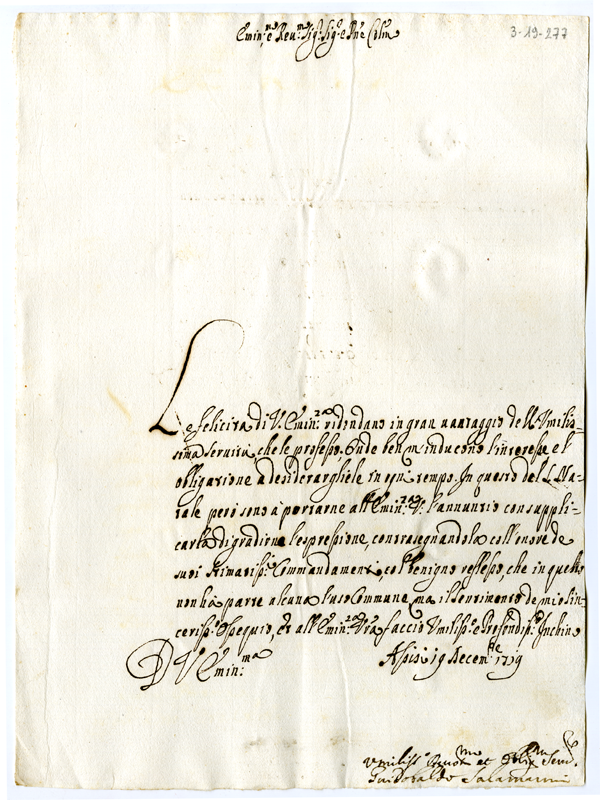 Emin:e Reu.mo Sig:r Sig:r e Pne Colmo
3-19-277
Le felicità di V. Emin:za ridondano in gran uantaggio dell'Umilis=
sima seruitù, che le professo, Onde ben m'inducono l'interesse e l'
obligatione à desiderargliele in ogni tempo. In questo del S. Na=
tale però sono à portarne all'Emin:za V: l'annuntio con suppli=
carla di gradirne l'espressione, contrasegnandola coll'onore de
suoi stimatiss:i Commandamenti, col benigno riflesso, che in questo
non hà parte alcuna l'uso Commune, ma il sentimento de mio sin=
ceriss:o Ossequio, et all'Emin:za Vra faccio Umiliss:o e Profondiss:o Inchino
D V Emin:ma
Assisi 19 Decem:re 1719
Umiliss:o Deuot:mo et Obl:mo Seru:
Guidoraldo